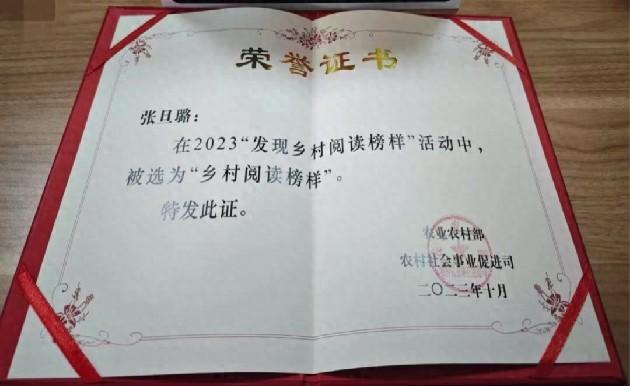 荣誉证书
张旦璐：
在2023“发现乡村阅读榜样”活动中，
被选为“乡村阅读榜样”。
特发此证。
农业农村部
农村社会事业促进司
二〇二三年十月